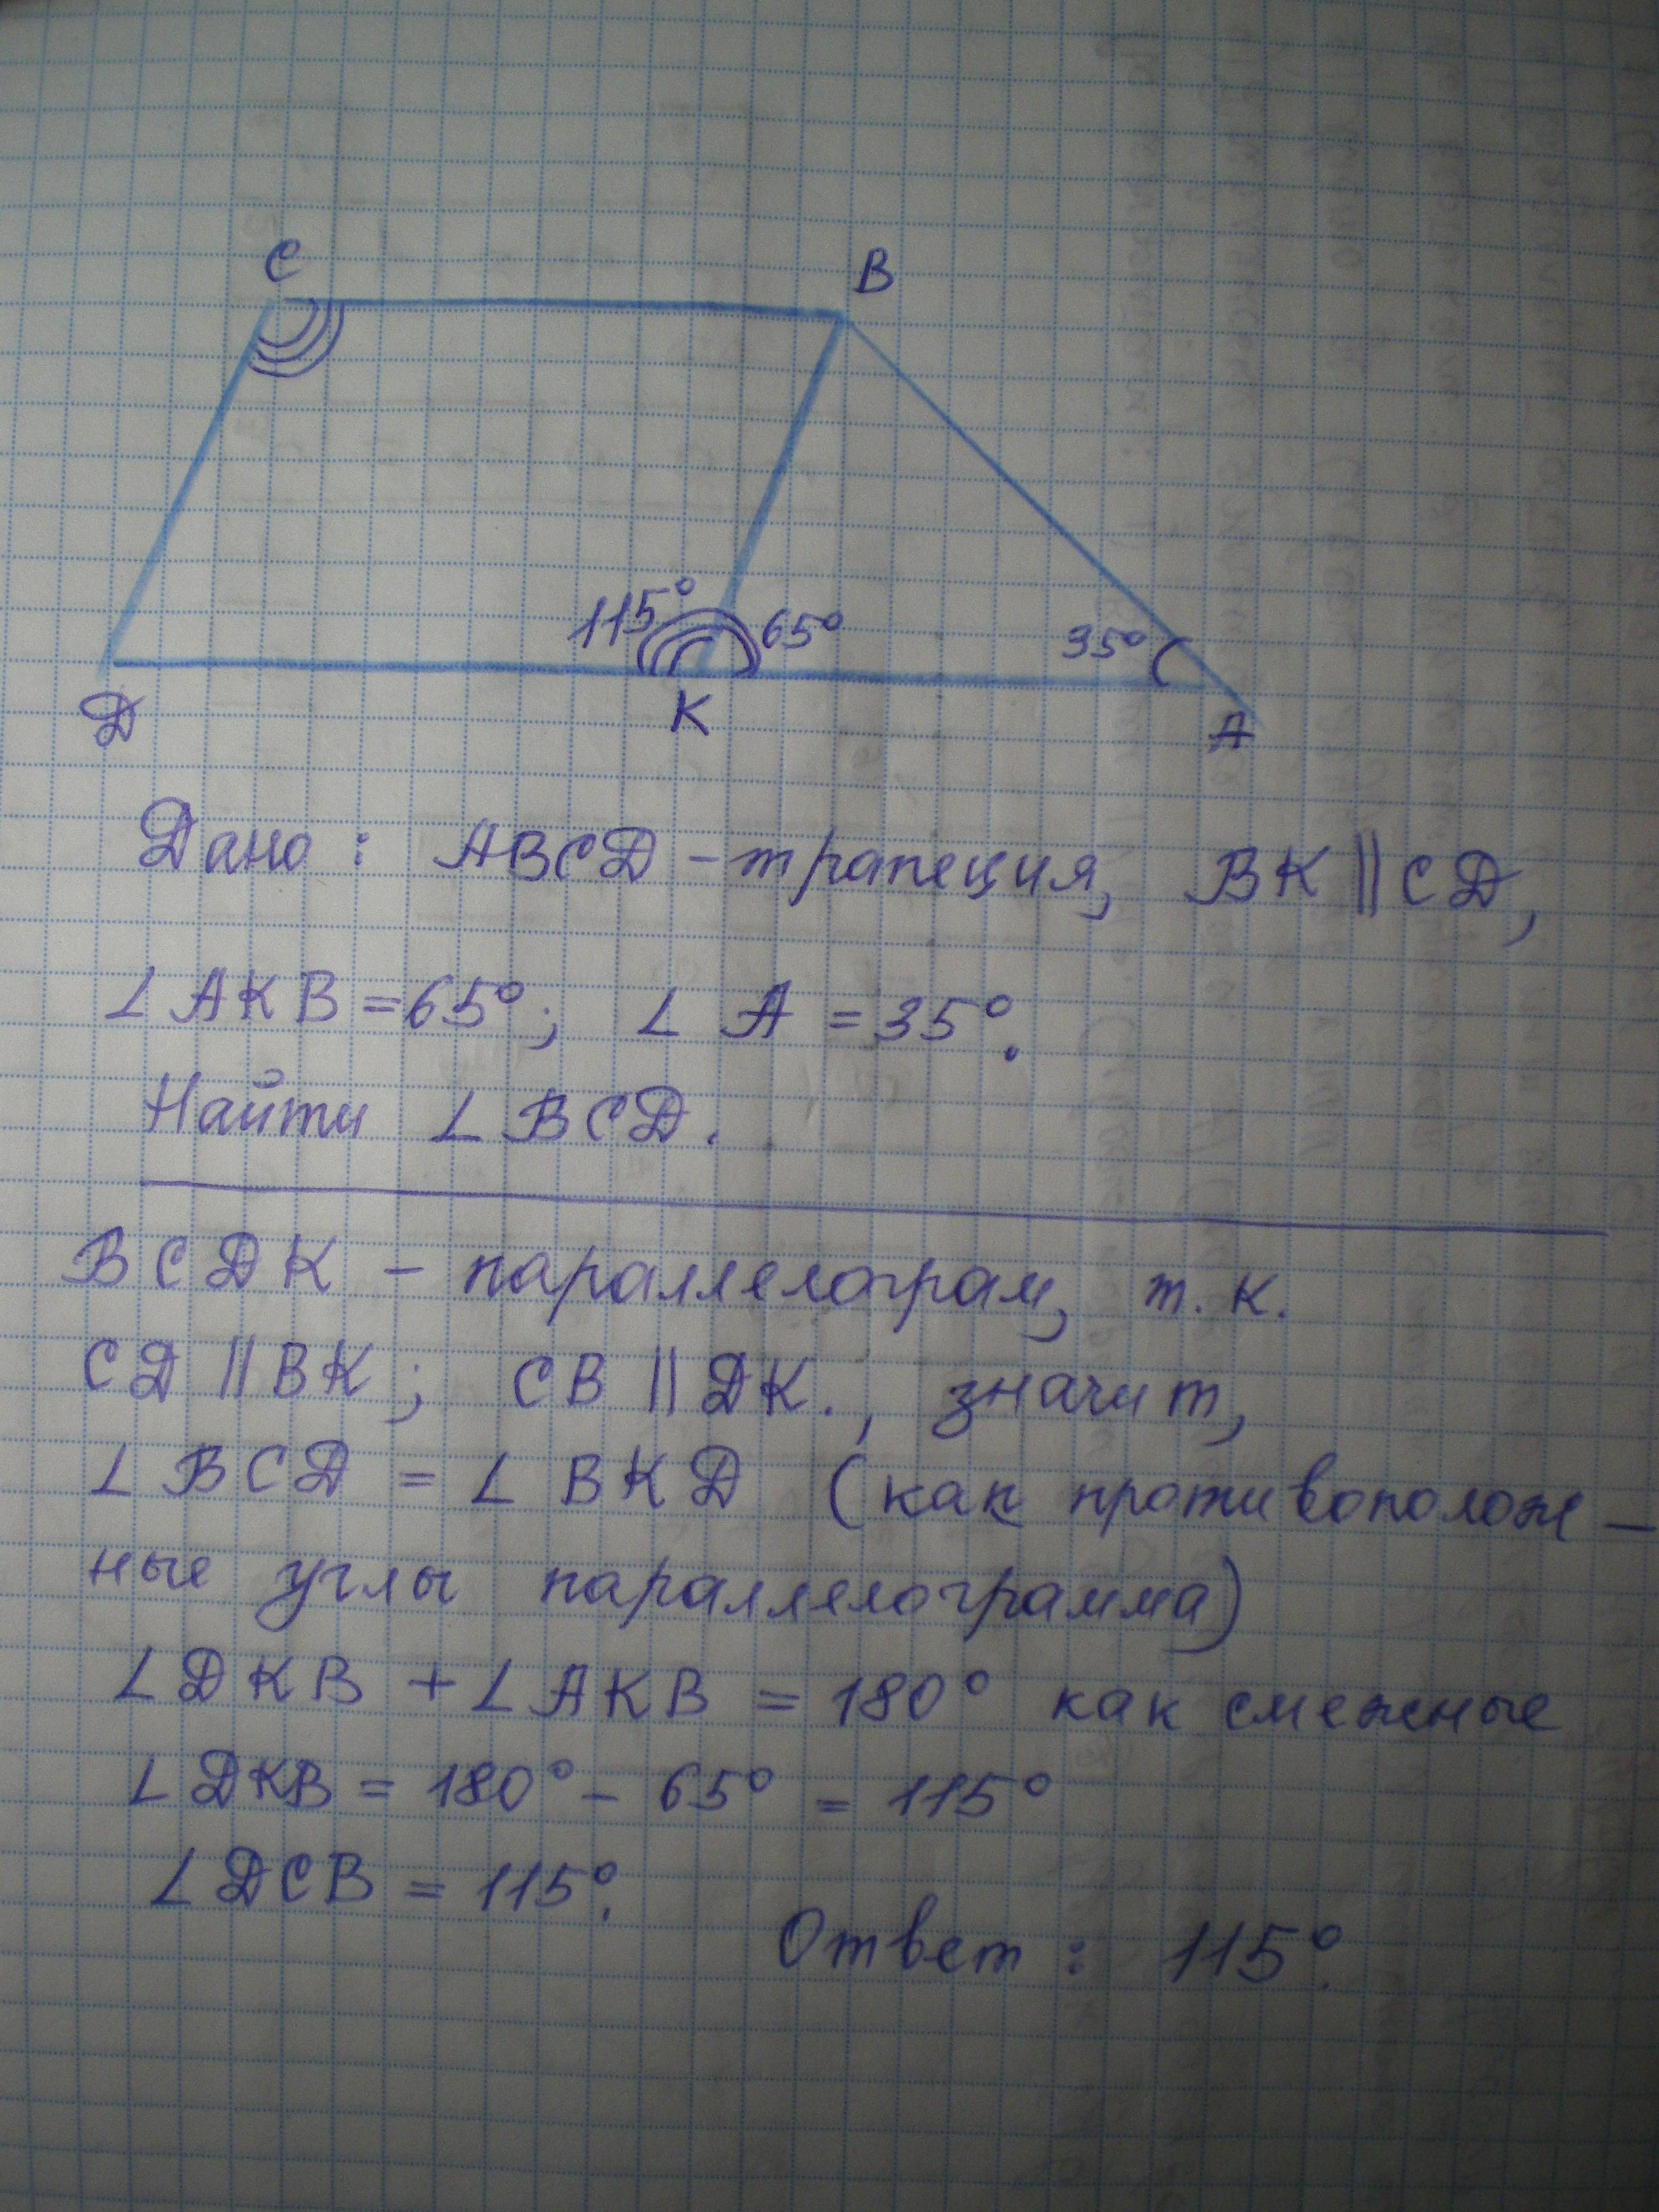 C
B
115°
65°
35°
D
K
A
Дано: ABCD - трапеция, BK || CD,
∠ AKB = 65°; ∠ A = 35°.
Найти ∠ BCD.
BCDK - параллелограм, т. к.
CD || BK; CB || DK., значит,
∠ BCD = ∠ BKD (как противополож-
ные углы параллелограмма)
∠ DKB + ∠ AKB = 180° как смежные
∠ DKB = 180° - 65° = 115°
∠ DCB = 115°.
Ответ: 115°.